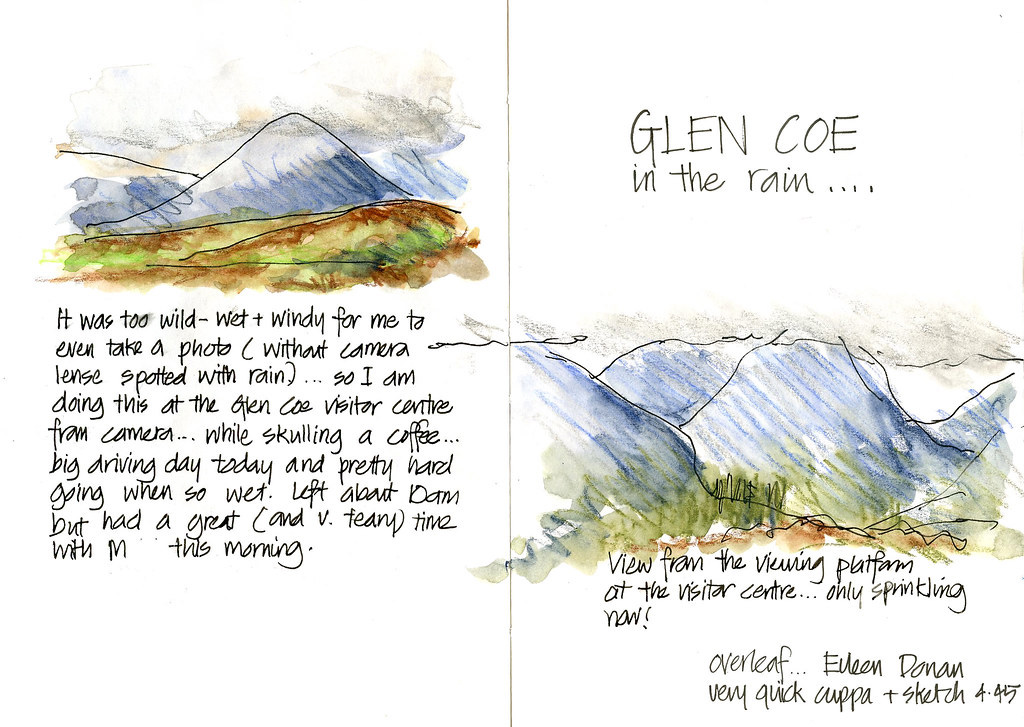 It was too wild - wet + windy for me to
even take a photo (without camera
lense spotted with rain) ... so I am
doing this at the Glen Coe visitor centre
from camera... while skulling a coffee...
big driving day today and pretty hard
going when so wet. Left about 10am
but had a great (and v. teary) time
with M this morning.
GLEN COE
in the rain ....
View from the viewing platform
at the visitor centre... only sprinkling
now!
overleaf... Eileen Donan
very quick cuppa + sketch 4.45